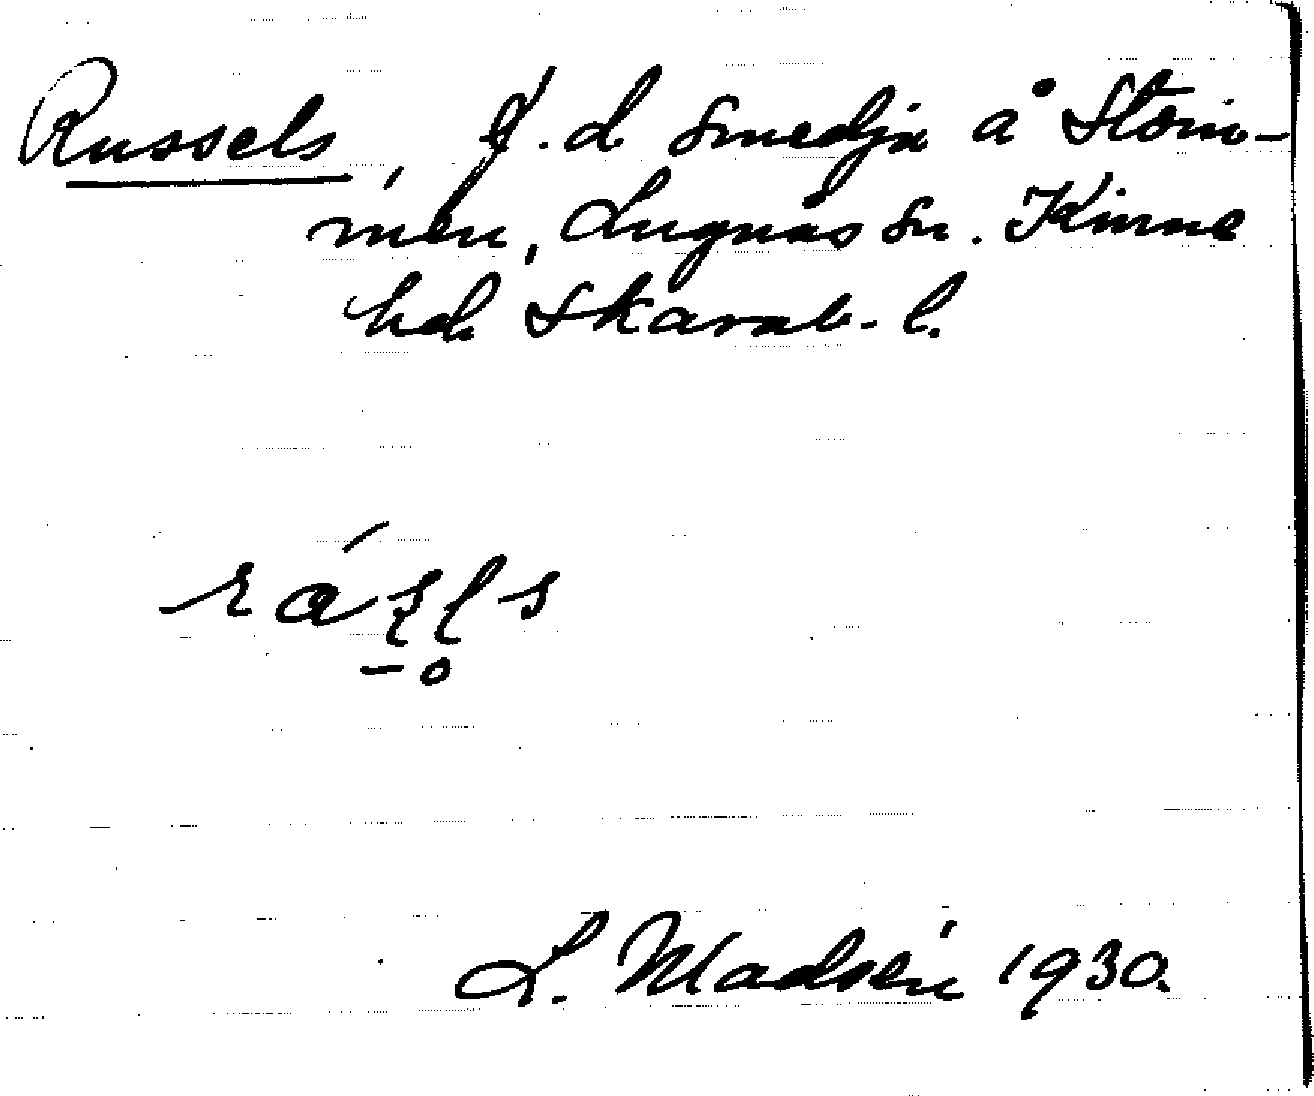 Russels, f.d smedja å Stom-
men, Lugnås sn. Kinne
hd. Skarab. l.
L. Madsén 1930.